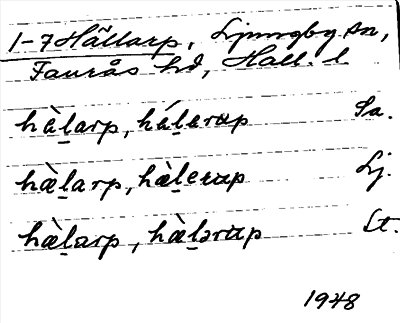 1-7 Hällarp, Ljungby sn,
Faurås hd, Hall. l.
hæ̀l̲arp, hǽl̲erup Sa.
hæ̀l̲arp, hæ̀l̲erup Lj.
hæ̀l̲arp, hæ̀l̲ərup St.
1948